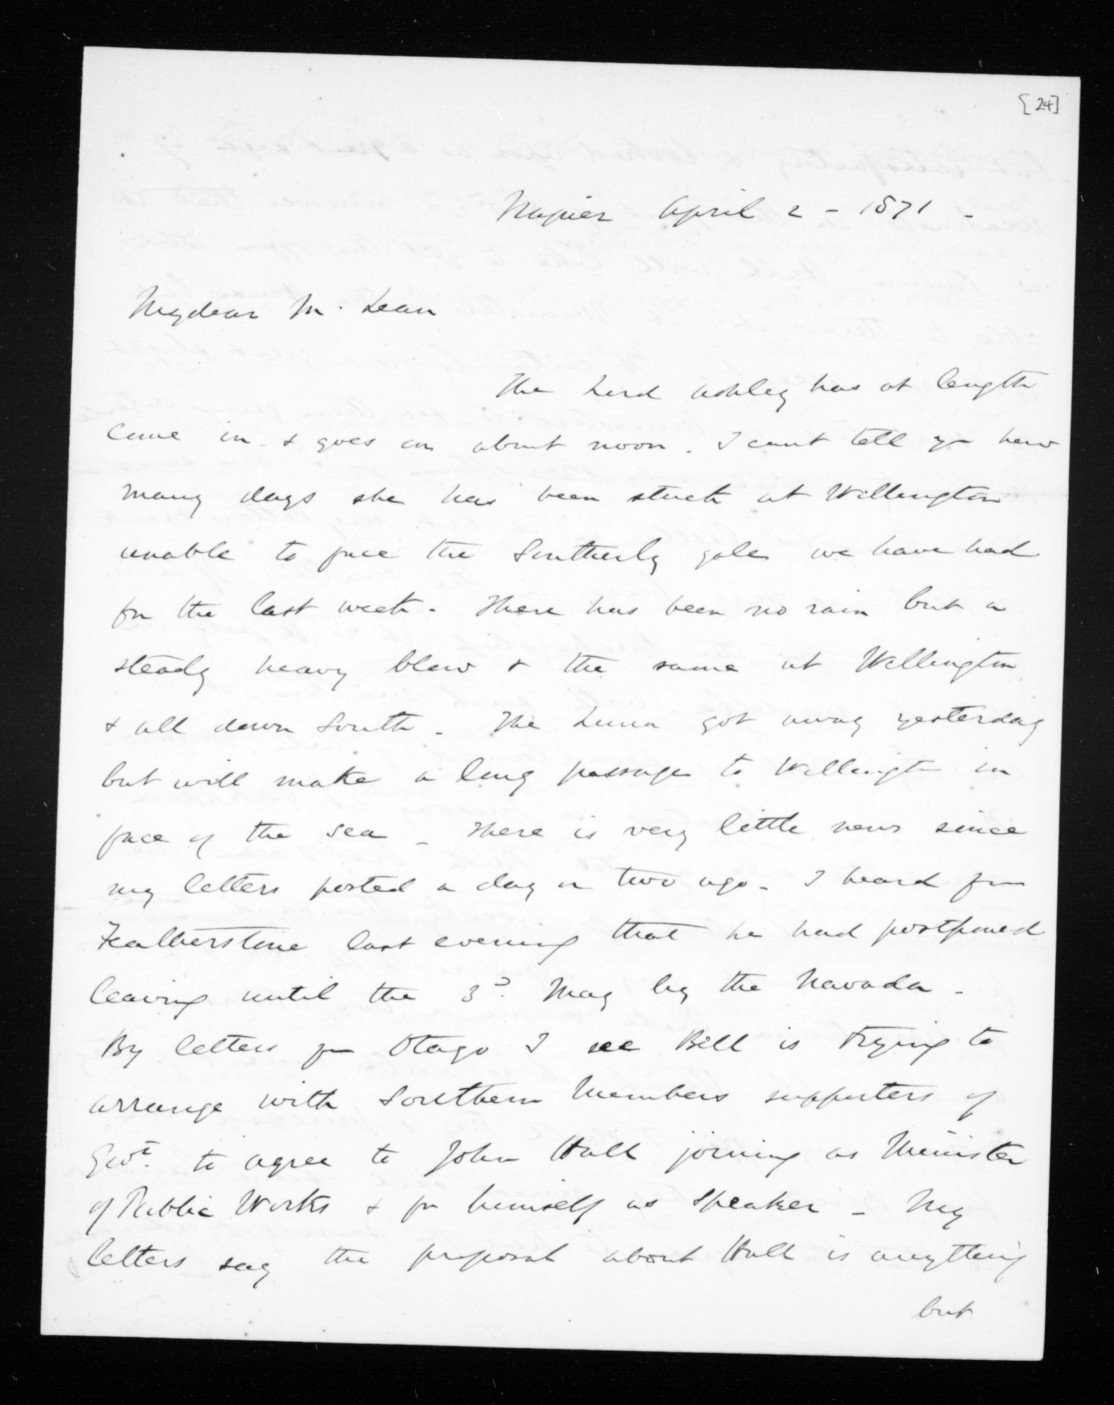 [24]
Napier April 2 - 1871 -
My dear McLean
The Lord Ashley has at length
come in & goes on about noon. I cant tell yr how
many days she has been stuck at Wellington
unable to face the Southerly gale we have had
for the last week. There has been no rain but a
steady heavy blow & the same at Wellington
& all down South. The Luna got away yesterday
but will make a long passage to Wellington in
face of the sea - There is very little news since
my letters posted a day or two ago. I heard from
Featherstone last evening that he had postponed
leaving until the 3d. May by the Navada -
By letters fm Otago I see Bell is trying to
arrange with Southern Members supporters of
Govt. to agree to John Hall joining as Minister
of Public Works & for himself as Speaker - My
letters say the proposal about Hall is anything
but